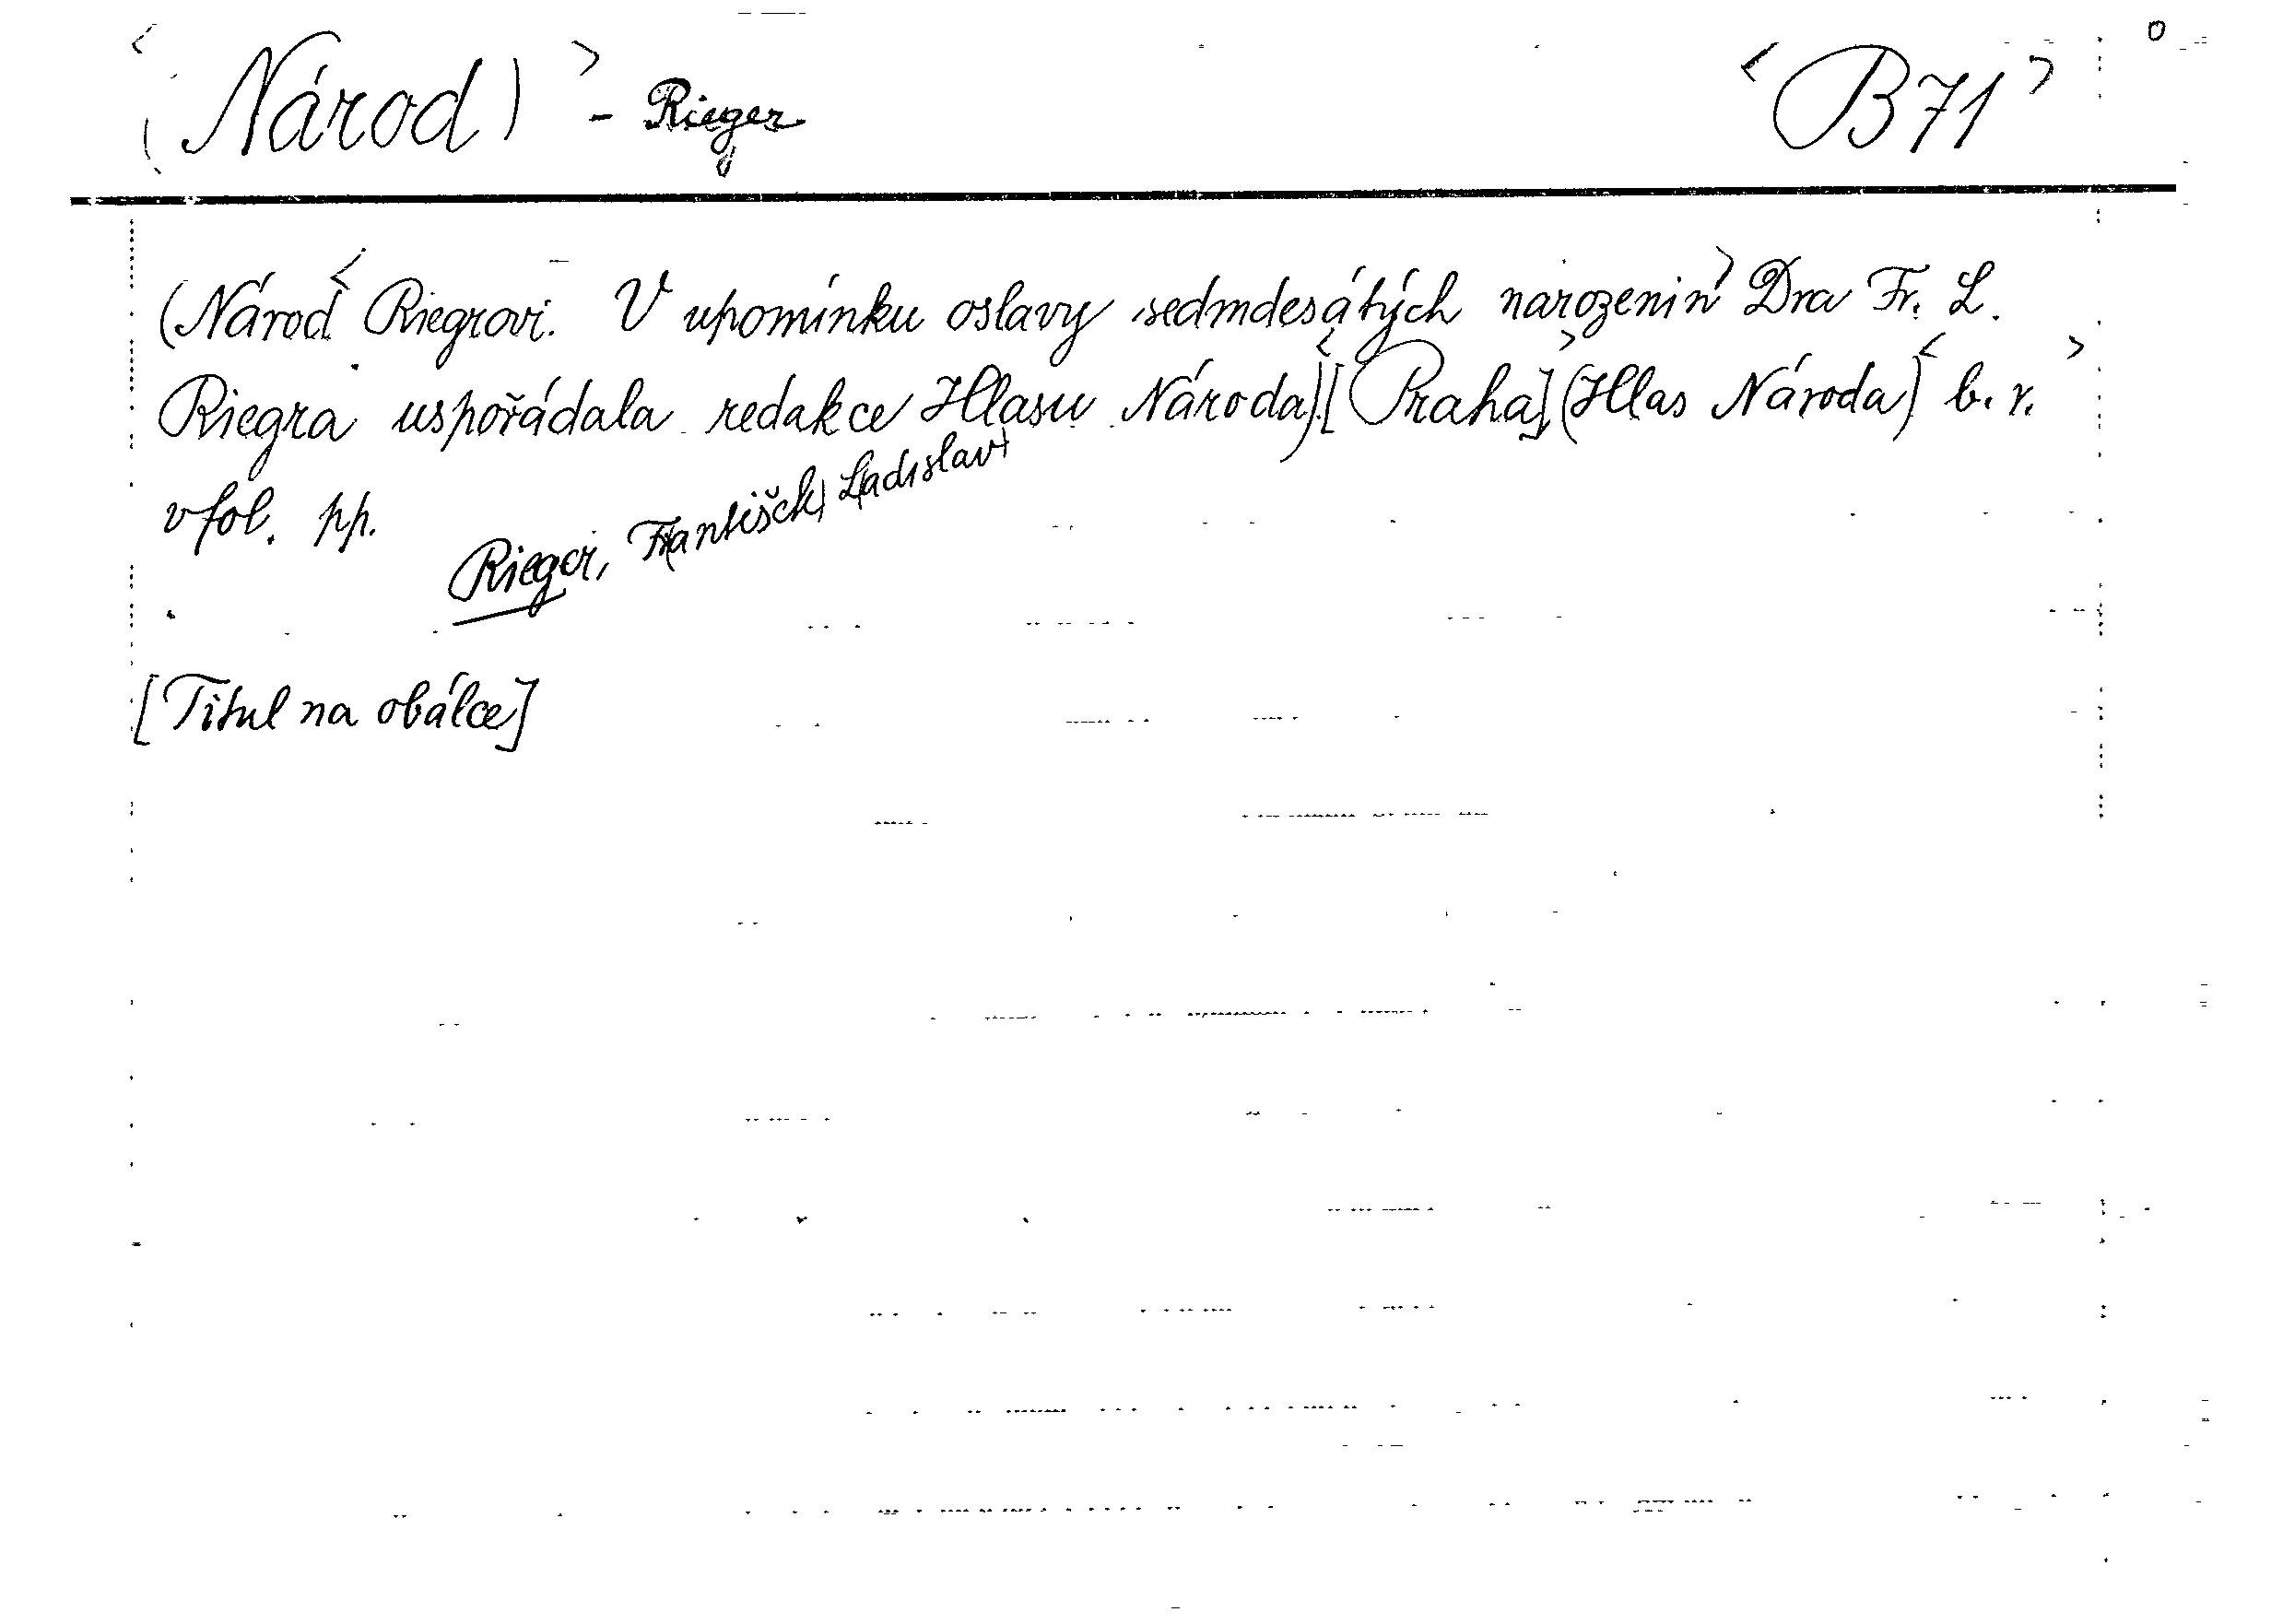 <(Národ)> - Rieger <B71>
(Národ <Riegrovi. V upomínku oslavy sedmdesátých narozenin> Dra Fr. L.
Riegra uspořádala redakce Hlasu Národa). <[Praha]> (Hlas Národa) <b. r.>
v fol. pp.
Rieger, František Ladislav
[Titul na obálce]